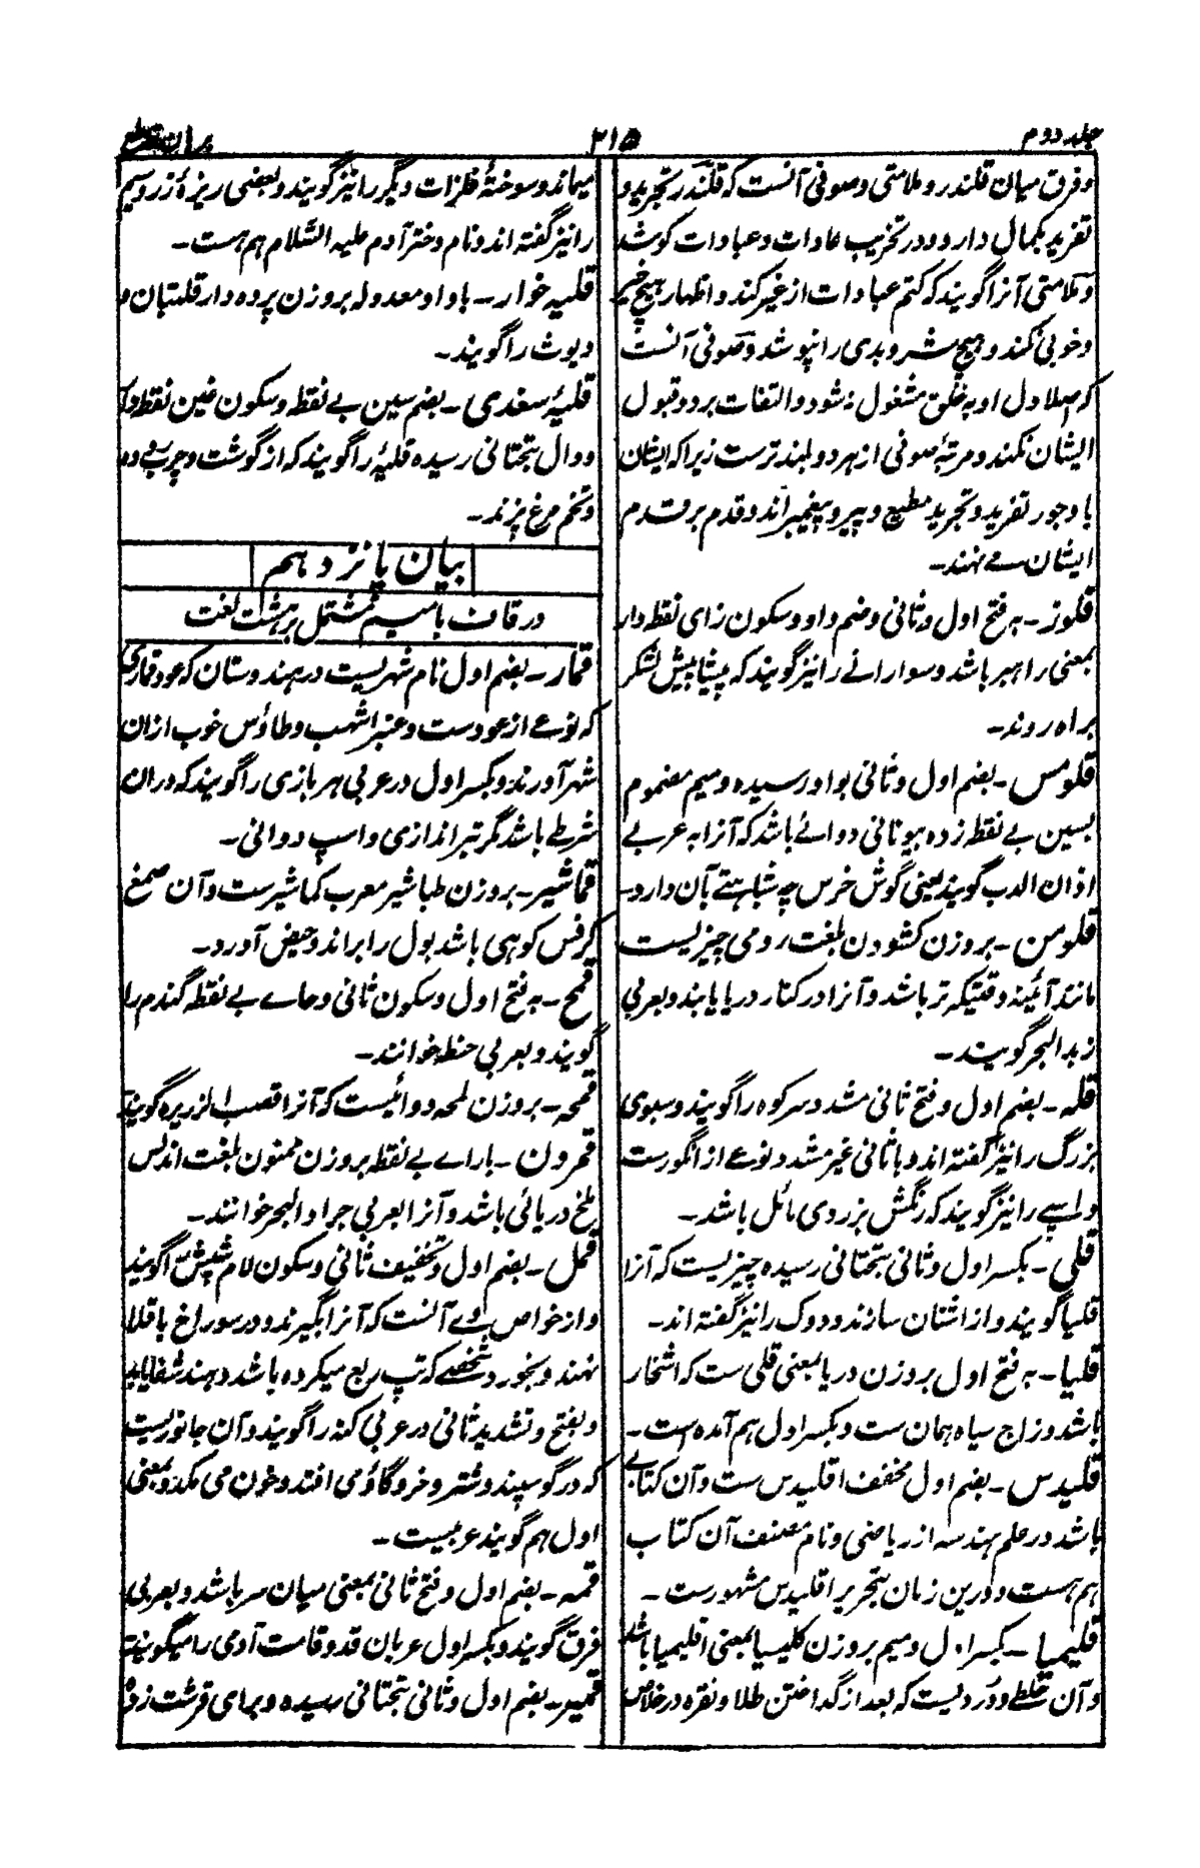 جلد دوم
۲۱۵
برہان قاطع
و فرق میان قلندر و ملامتی و صوفی آنست کہ قلندر تجرید و
تفرید بکمال دارد و در تخریب عادات و عبادات کوشد
و ملامتی آنرا گویند کہ کتم عبادات از غیر کند و اظہار ہیچ خیر
و خوبی نکند و ہیچ شر و بدی را نپوشد و صوفی آنست
کہ اصلا دل او بہ خلق مشغول نشود و التفات برد و قبول
ایشان نکند و مرتبۂ صوفی از ہر دو بلند ترست زیرا کہ ایشان
با وجود تفرید و تجرید مطیع و پیرو پیغمبر اند و قدم بر قدم
ایشان مے نہند۔
قلوز۔ بہ فتح اول و ثانی و ضم واو و سکون زای نقطہ دار
بمعنی راہبر باشد و سوارانے را نیز گویند کہ پیشاپیش لشکر
براہ روند۔
قلومس۔ بضم اول و ثانی بواو رسیدہ و میم مضموم
بسین بے نقطہ زدہ بیونانی دوائے باشد کہ آنرا بہ عربے
اذان الدب گویند یعنی گوش خرس چہ شباہتے بآن دارد۔
قلومن۔ بروزن کشودن بلغت رومی چیزیست
مانند آئینہ وقتیکہ تر باشد و آنرا در کنار دریا یابند و بعربی
زبد البحر گویند۔
قلہ۔ بضم اول و فتح ثانی مشدد سر کوہ را گویند و سبوی
بزرگ را نیز گفتہ اند و با ثانی غیر مشدد نوعے از انگورست
و اسپے را نیز گویند کہ رنگش بزردی مائل باشد۔
قلی۔ بکسر اول و ثانی بتحتانی رسیدہ چیزیست کہ آنرا
قلیا گویند و از اشنان سازند و دوک را نیز گفتہ اند۔
قلیا۔ بہ فتح اول بروزن دریا بمعنی قلی ست کہ اشخار
باشد و زاج سیاہ ہمان ست و بکسر اول ہم آمدہ است۔
قلیدس۔ بضم اول مخفف اقلیدس ست و آن کتابے
باشد در علم ہندسہ از ریاضی و نام مصنف آن کتاب
ہم ہست و درین زمان بتحریر اقلیدس مشہورست۔
قلیمیا۔ بکسر اول و میم بروزن کلیسیا بمعنی اقلیمیا باشد
و آن خلطے و دُردیست کہ بعد از گداختن طلا و نقرہ در خلاص
میماند و سوختۂ فلزات دیگر را نیز گویند و بعضی ریزۂ زر و سیم
را نیز گفتہ اند و نام دختر آدم علیہ السّلام ہم ہست۔
قلیہ خوار۔ با واو معدولہ بروزن پردہ دار قلتبان و
دیوث را گویند۔
قلیۂ سغدی۔ بضم سین بے نقطہ و سکون غین نقطہ دار
و دال بتحتانی رسیدہ قلیۂ را گویند کہ از گوشت و چربے و
و تخم مرغ پزند۔
بیان پانزدہم
در قاف با میم مشتمل بر ہشت لغت
قمار۔ بضم اول نام شہریست در ہندوستان کہ عود قماری
کہ نوعے از عودست و عنبر اشہب و طاؤس خوب از ان
شہر آورند و بکسر اول در عربی ہر بازی را گویند کہ در ان
شرطے باشد مگر تیر اندازی و اسپ دوانی۔
قماشیر۔ بروزن طباشیر معرب کماشیرست و آن صمغ
کرفس کوہی باشد بول را براند و حیض آورد۔
قمح۔ بہ فتح اول و سکون ثانی و حاے بے نقطہ گندم را
گویند و بعربی حنطہ خوانند۔
قمحہ۔ بروزن لمحہ دوائیست کہ آنرا قصب الزریرہ گویند
قمرون۔ با راے بے نقطہ بروزن ممنون بلغت اندلس
ملخ دریائی باشد و آنرا بعربی جراد البحر خوانند۔
قمل۔ بضم اول و تخفیف ثانی و سکون لام شپش را گویند
و از خواص وے آنست کہ آنرا بگیرند و در سوراخ باقلا
نہند و بخورد شخصے کہ تپ ربع میکردہ باشد دہند شفا یابد
و بفتح و تشدید ثانی در عربی کنہ را گویند و آن جانوریست
کہ در گوسپند و شتر و خر و گاؤ می افتد و خون می مکد و بمعنی
اول ہم گویند عربیست۔
قمہ۔ بضم اول و فتح ثانی بمعنی میان سر باشد و بعربی
فرق گویند و بکسر اول عربان قد و قامت آدمی را میگویند
قمیر۔ بضم اول و ثانی بتحتانی رسیدہ و برای قرشت زدہ